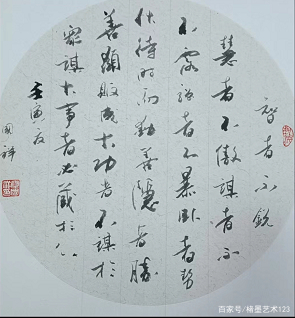 智者不銳
慧者不傲謀者不
露強者不暴卧者势
伏待时而動善隱者勝
善顯敗成大功者不謀於
众謀大事者必藏於心
壬寅夏
国祥
百家号/
墨艺术123